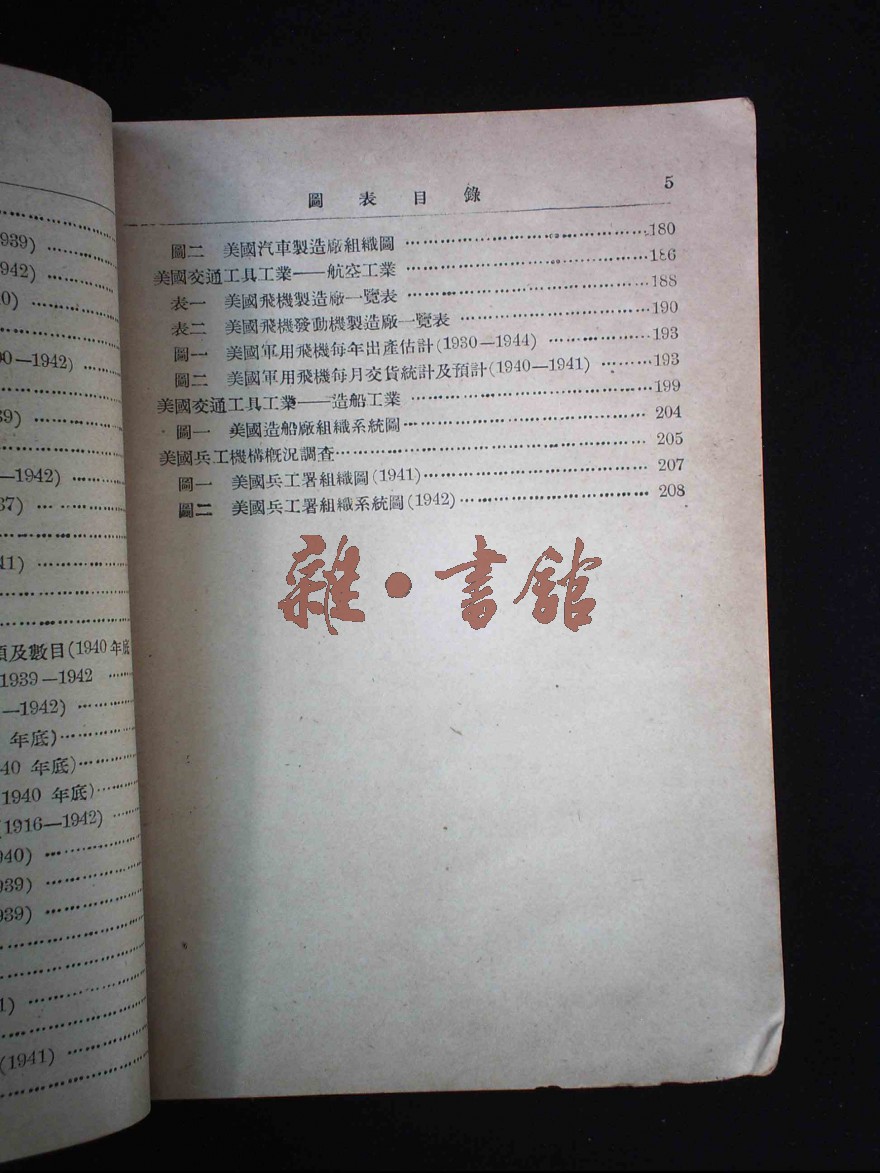 939)
942)
0)
00—1942)
39)
—1942)
37)
41)
項及數目(1940年底
1939—1942
—1942)
年底)
40 年底)
1940 年底)
(1916—1942)
940)
939)
939)
1)
(1941)
圖表目錄 5
圖二 美國汽車製造廠組織圖 180
美國交通工具工業——航空工業 186
表一 美國飛機製造廠一覽表 188
表二 美國飛機發動機製造廠一覽表 190
圖一 美國軍用飛機每年出產估計(1930—1944) 193
圖二 美國軍用飛機每月交貨統計及預計(1940—1941) 193
美國交通工具工業——造船工業 199
圖一 美國造船廠組織系統圖 204
美國兵工機構概況調查 205
圖一 美國兵工署組織圖(1941) 207
圖二 美國兵工署組織系統圖(1942) 208
雜·書館